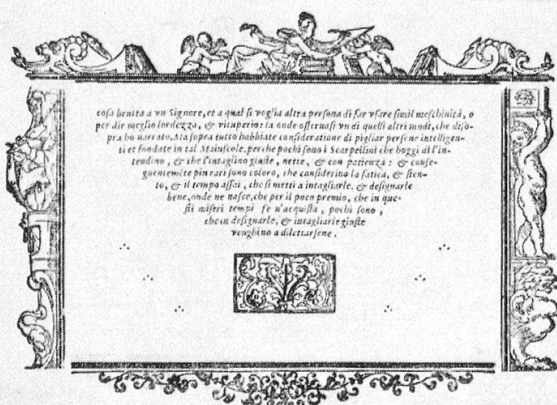 cosa brutta a vn Signore, et a qual si voglia altra persona di far vsare simil meschinità, o
per dir meglio lordezza, & vituperio: la onde osseruasi vn di quelli altri modi, che diso-
pra ho narrato. Ma sopra tutto habbiate consideratione di pigliar persone intelligen-
ti et fondate in tal Maiuscole. perche pochi sono i Scarpellini che hoggi dì l'in-
tendino, & che l'intaglino giuste, nette, & con patienza: & conse-
guentemēte piu rari sono coloro, che considerino la fatica, & sten-
to, & il tempo assai, che si metti a intagliarle, & designarle
bene, onde ne nasce, che per il poco premio, che in que-
sti miseri tempi se n'acquista, pochi sono,
che in designarle, & intagliarle giuste
venghino a dilettarsene.